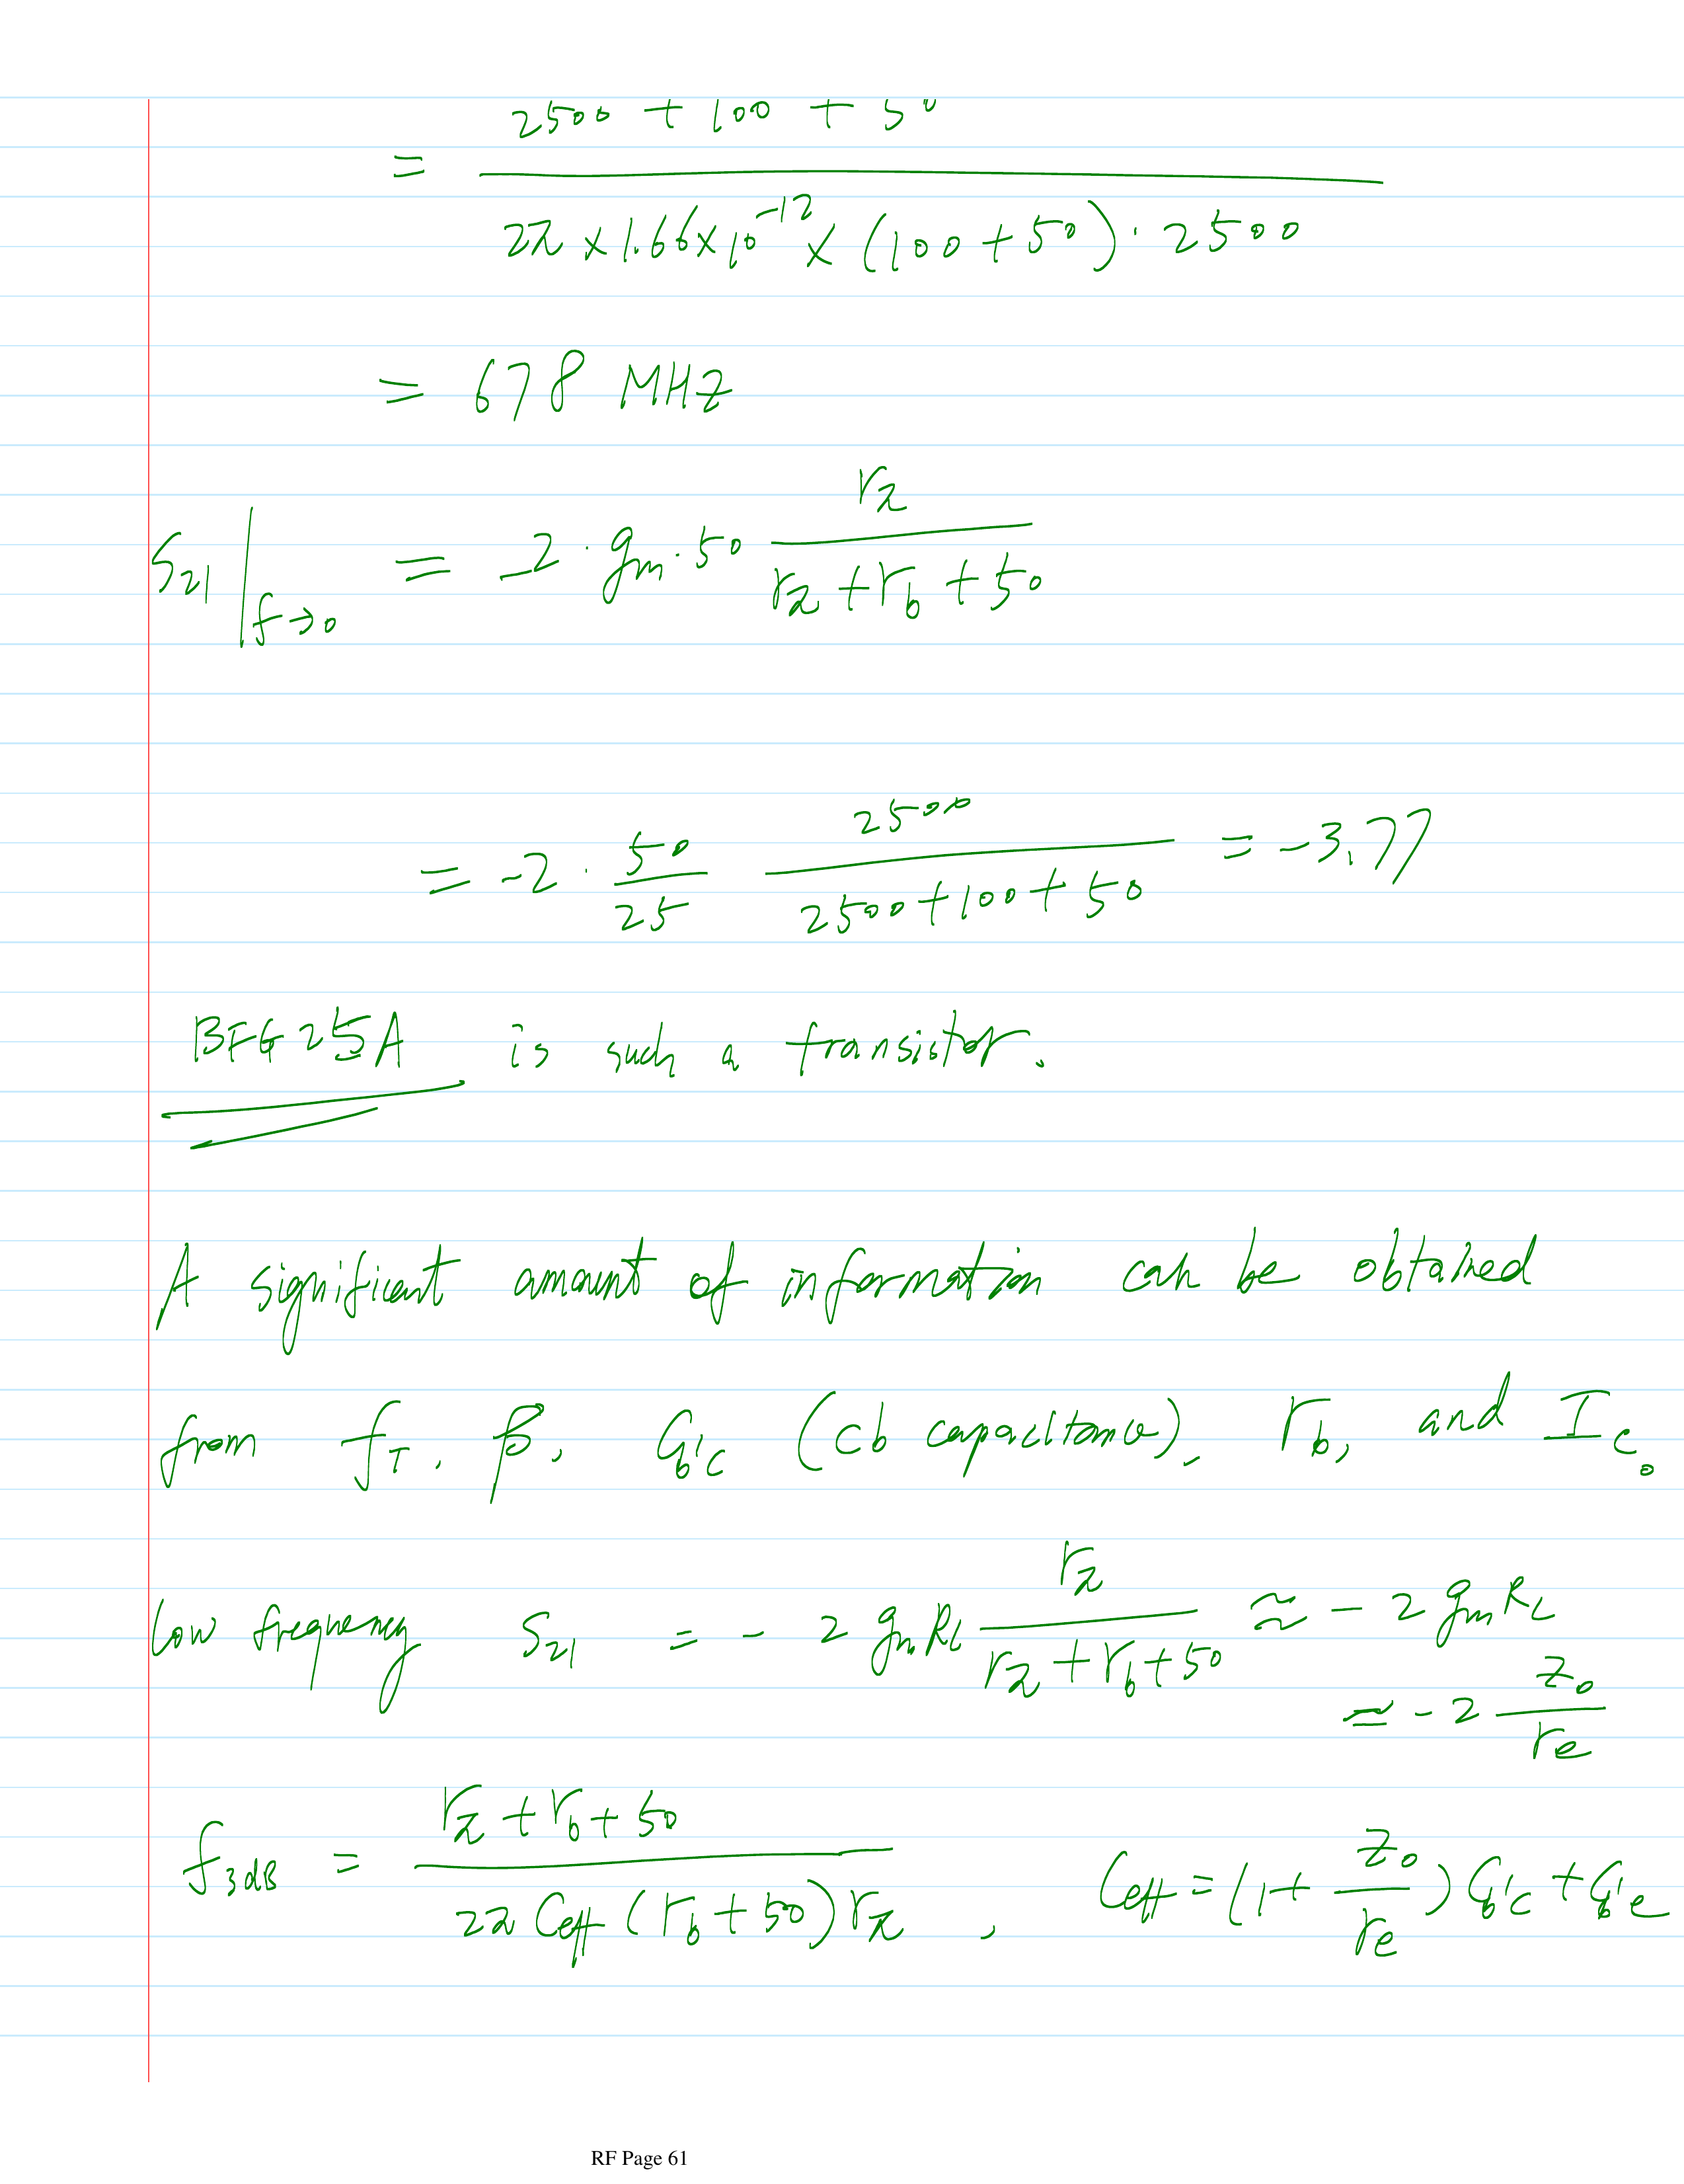 2500 + 100 + 50
= ―――――――――
2π × 1.66 × 10⁻¹² × (100 + 50) · 2500
= 678 MHz
S₂₁ |_{f→0} = -2 · gm · 50 rπ / (rπ + rb + 50)
= -2 · 50/25 2500 / (2500 + 100 + 50) = -3.77
BFG25A is such a transistor.
A significant amount of information can be obtained
from fT, β, Cb'c (cb capacitance), rb, and Ic.
low frequency S₂₁ = - 2 gm RL rπ / (rπ + rb + 50) ≈ - 2 gm RL
≃ - 2 Z₀ / re
f3dB = (rπ + rb + 50) / (2π Ceff (rb + 50) rπ) , Ceff = (1 + Z₀/re) Cb'c + Cb'e
RF Page 61